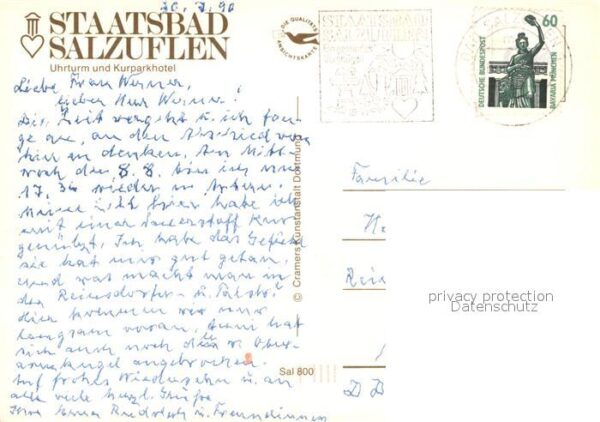 STAATSBAD
SALZUFLEN
Uhrturm und Kurparkhotel
DIE QUALITÄTS
ANSICHTSKARTE
STAATSBAD
SALZUFLEN
60
DEUTSCHE BUNDESPOST
BAVARIA MÜNCHEN
Liebe Frau Werner,
lieber Herr Werner!
Die Zeit vergeht u. ich fan-
ge an, an den Abschied von
hier zu denken. Am Mitt-
woch den 8. 8. bin ich um
17,30 wieder in
Meine Zeit hier habe ich
mit einer Sauerstoff Kur
genützt. Ich habe das Gefühl
sie hat mir gut getan.
und was macht man in
der Reinsdorfer- u.
Hier kommen wir nur
langsam voran.
sich auch noch die
angebrochen.
Auf frohes Wiedersehn u. an
alle viele herzl. Grüße
Ihre u. Freundinnen
© Cramers Kunstanstalt Dortmund
Sal 800
Familie
privacy protection
Datenschutz